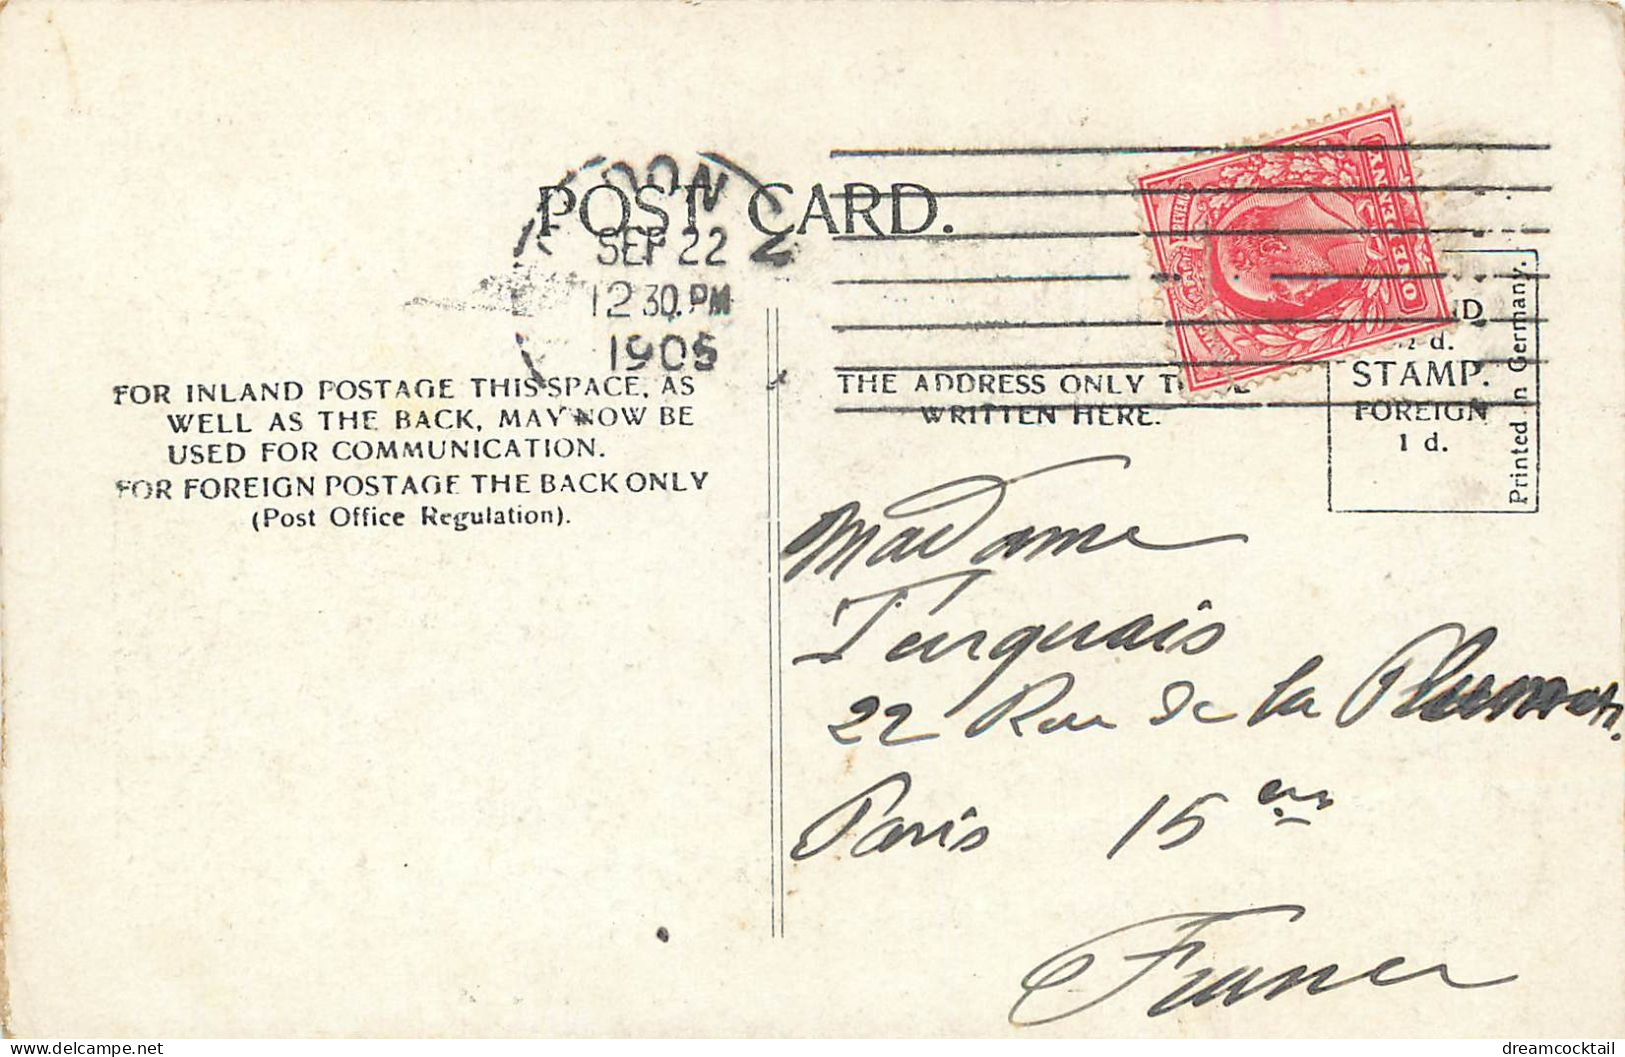 POST CARD.
DON
SEP 22
12 30 PM
1905
REVENUE
ONE PENNY
FOR INLAND POSTAGE THIS SPACE, AS
WELL AS THE BACK, MAY NOW BE
USED FOR COMMUNICATION.
FOR FOREIGN POSTAGE THE BACK ONLY
(Post Office Regulation).
THE ADDRESS ONLY TO BE
WRITTEN HERE.
½ d.
STAMP.
FOREIGN
1 d.
Printed in Germany.
Madame
Turquais
22 Rue de la
Paris 15 em
France
delcampe.net
dreamcocktail